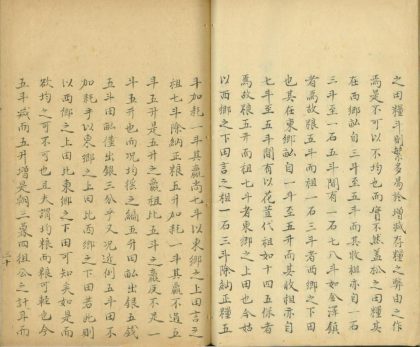 之田糧斗則繁多易於增減吞糧之弊由之作
焉是不可以不均也而實不然蓋松之田糧莫
在西鄉畝自三斗至五斗而其收租亦自一石
三斗至一石五斗間有一石七八斗如金澤鎮
者焉故糧五斗而租一石三斗者西鄉之下田
也其在東鄉畝自一斗至五升而其收租亦自
七斗至五斗間有以花荳代租如十四五保者
焉故糧五升而租七斗者東鄉之上田也今姑
以西鄉之下田言之租一石三斗除納正糧五
斗加耗一斗其贏尚七斗以東鄉之上田言之
租七斗除納正糧五升加耗一斗其贏不過五
斗五升是五升之贏租比五斗之贏反不足一
斗五升也而況均徭之編五升田畝出銀五錢
五斗田畝僅出銀三分乎又況近例五斗田不
加耗乎以東鄉之上田比西鄉之下田若此則
以西鄉之上田比東鄉之下田可知矣如是而
欲均之可不可也且夫謂均糧而糧可輕也今
五斗減而五升增是朝三暮四狙公之計耳而
三十